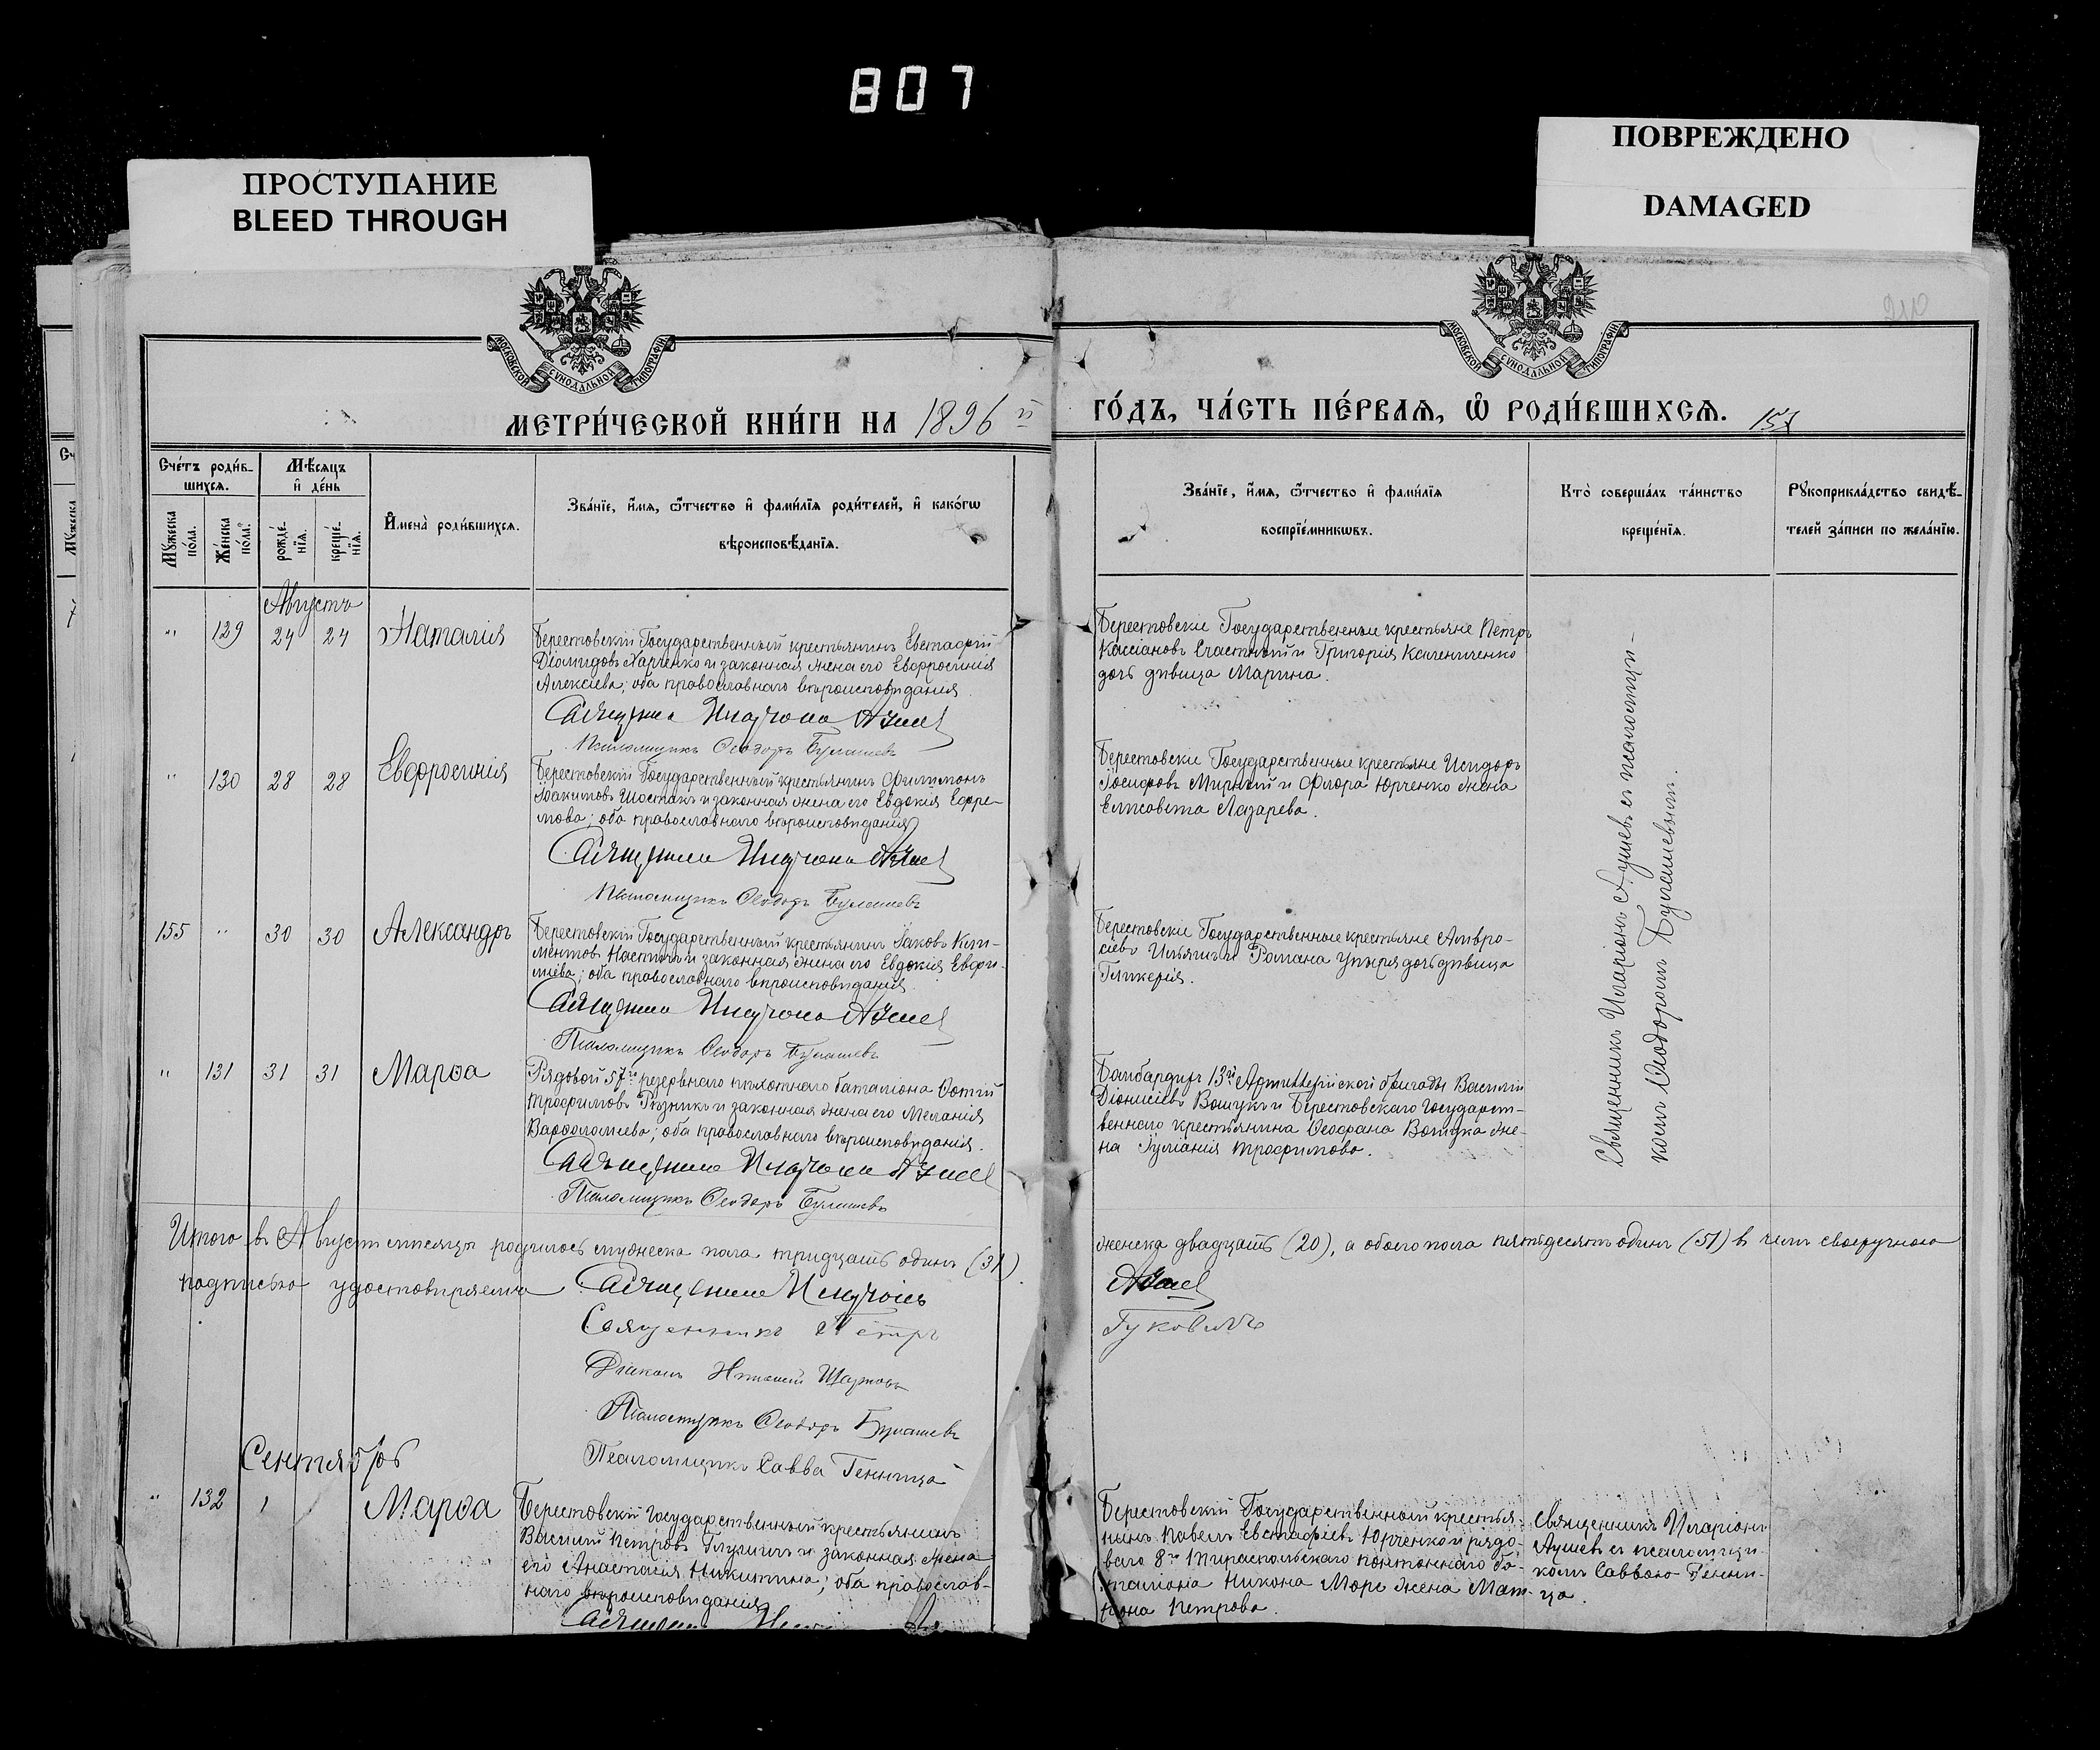 807
ПРОСТУПАНИЕ
BLEED THROUGH
ПОВРЕЖДЕНО
DAMAGED
МОСКОВСКОЙ СУНОДАЛЬНОЙ ТИПОГРАФІИ
МОСКОВСКОЙ СУНОДАЛЬНОЙ ТИПОГРАФІИ
210
МЕТРИ́ЧЕСКОЙ КНИ́ГИ НА 1896 й
ГО́ДЪ, ЧА́СТЬ ПЕ́РВАЯ, Ѡ҆ РОДИ́ВШИХСЯ. 157
Сче́тъ роди́в-
шихся.
Мѣ́сяцъ
и҆ де́нь
Му́жеска
по́ла.
Же́нска
по́ла.
рожде́-
нїя.
креще́-
нїя.
И҆мена̀ роди́вшихся.
Зва́нїе, и҆́мя, ѻ҆́тчество и҆ фами́лїя роди́телей, и҆ како́гѡ
вѣроисповѣ́данїя.
Зва́нїе, и҆́мя, ѻ҆́тчество и҆ фами́лїя
воспрїе́мникѡвъ.
Кто̀ соверша́лъ та́инство
креще́нїя.
Рꙋкоприкла́дство свидѣ́-
телей за́писи по жела́нїю.
Августъ
" 129 24 24 Наталія
Берестовскій Государственный крестьянинъ Евстафій
Діомидовъ Харченко и законная жена его Евфросинія
Алексіева; оба православнаго вѣроисповѣданія.
Священникъ Иларіонъ Аушев
Псаломщикъ Ѳеодоръ Булашевъ
Берестовскіе Государственные крестьяне Петръ
Кассіановъ Счастный и Григорія Калениченко
дочь дѣвица Марина.
" 130 28 28 Евфросинія
Берестовскій Государственный крестьянинъ Филимонъ
Іоакимовъ Шостакъ и законная жена его Евдокія Ефре-
мова; оба православнаго вѣроисповѣданія
Священникъ Иларіонъ Аушев
Псаломщикъ Ѳеодоръ Булашевъ
Берестовскіе Государственные крестьяне Исидоръ
Іосифовъ Мирный и Флора Юрченко жена
Елисавета Лазарева.
155 " 30 30 Александръ
Берестовскій Государственный крестьянинъ Іаковъ Кли-
ментовъ и законная жена его Евдокія Евфи-
міева; оба православнаго вѣроисповѣданія
Священникъ Иларіонъ Аушев
Псаломщикъ Ѳеодоръ Булашевъ
Берестовскіе Государственные крестьяне Амвро-
сіевъ и Романа дочь дѣвица
Гликерія.
" 131 31 31 Марѳа
Рядовой 57го резервнаго пѣхотнаго баталіона Фотій
Трофимовъ Рѣзникъ и законная жена его Меланія
Варѳоломеева; оба православнаго вѣроисповѣданія.
Священникъ Иларіонъ Аушев
Псаломщикъ Ѳеодоръ Булашевъ
Бомбардиръ 13й Артиллерійской бригады Василій
Діонисіевъ и Берестовскаго Государст-
веннаго крестьянина Ѳеофана же-
на Іуліанія Трофимова.
Священникъ Иларіонъ Аушевъ съ псаломщи-
комъ Ѳеодоромъ Булашевымъ.
Итого въ Августѣ мѣсяцѣ родилось мужеска пола тридцать одинъ (31)
женска двадцать (20), а обоего пола пятьдесятъ одинъ (51) в чемъ своеручною
подписью удостовѣряемъ Священникъ Иларіонъ
Аушев
Священникъ Петръ
Гуковичъ
Діаконъ
Псаломщикъ Ѳеодоръ Булашевъ
Псаломщикъ Савва Генница
Сентябрь
" 132 1 Марѳа
Берестовскій Государственный крестьянинъ
Василій Петровъ и законная жена
его Анастасія Никитина; оба православ-
наго вѣроисповѣданія
Священникъ
Берестовскій Государственный крестья-
нинъ Павелъ Евстафіевъ Юрченко и рядо-
ваго 8го Тираспольскаго понтоннаго ба-
таліона Никона Море жена Мат-
рона Петрова.
Священникъ Иларіонъ
Аушевъ съ псаломщи-
комъ Саввою Генни-
ца.